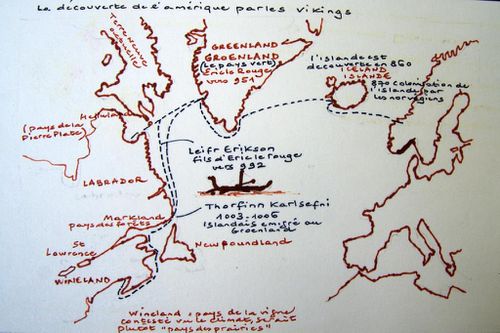 La découverte de l'amérique par les vikings
Terre Neuve
actuelle
GREENLAND
GROENLAND
(Le pays vert)
Eric le Rouge
vers 951
l'islande est
decouverte en 860
ICELAND
ISLANDE
870 colonisation de
l'islande par
les norvegiens
Helluland
(pays de la
Pierre Plate)
Leifr Erikson
fils d'Eric le rouge
vers 992
LABRADOR
Thorfinn Karlsefni
1003-1006
Islandais emigré au
Groenland
Markland
pays des forets
St
Lawrence
Newfoundland
WINELAND
Wineland : pays de la vigne
contesté vu le climat, serait
plutot "pays des prairies"